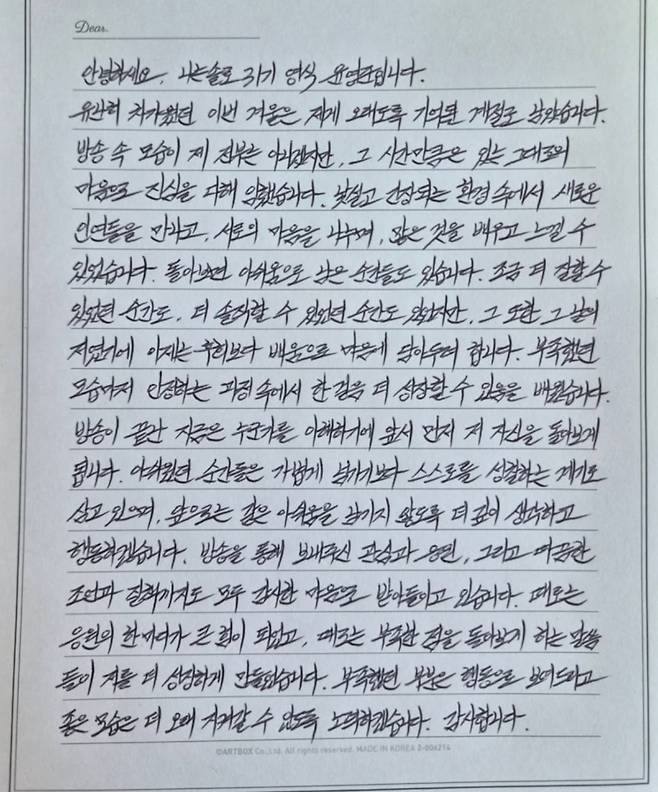 Dear.
안녕하세요. 나는솔로 31기 영식 윤영준입니다.
유난히 차가웠던 이번 겨울은 제게 오래도록 기억될 계절로 남았습니다.
방송 속 모습이 제 전부는 아니겠지만, 그 시간만큼은 있는 그대로의
마음으로 진심을 다해 임했습니다. 낯설고 긴장되는 환경 속에서 새로운
인연들을 만나고, 서로의 마음을 나누며, 많은 것을 배우고 느낄 수
있었습니다. 돌아보면 아쉬움으로 남은 순간들도 있습니다. 조금 더 잘할 수
있었던 순간도, 더 솔직할 수 있었던 순간도 있었지만, 그 또한 그 날의
저였기에 이제는 후회보다 배움으로 마음에 담아두려 합니다. 부족했던
모습마저 인정하는 과정 속에서 한 걸음 더 성장할 수 있음을 배웠습니다.
방송이 끝난 지금은 누군가를 이해하기에 앞서 먼저 저 자신을 돌아보게
됩니다. 아쉬웠던 순간들은 가볍게 넘기기보다 스스로를 성찰하는 계기로
삼고 있으며, 앞으로는 같은 아쉬움을 남기지 않도록 더 깊이 생각하고
행동하겠습니다. 방송을 통해 보내주신 관심과 응원, 그리고 따끔한
조언과 질책까지도 모두 감사한 마음으로 받아들이고 있습니다. 때로는
응원의 한마디가 큰 힘이 되었고, 때로는 부족한 점을 돌아보게 하는 말씀
들이 저를 더 성장하게 만들었습니다. 부족했던 부분은 행동으로 보여드리고
좋은 모습은 더 오래 지켜갈 수 있도록 노력하겠습니다. 감사합니다.
©ARTBOX Co.,Ltd. All rights reserved. MADE IN KOREA 2-006214